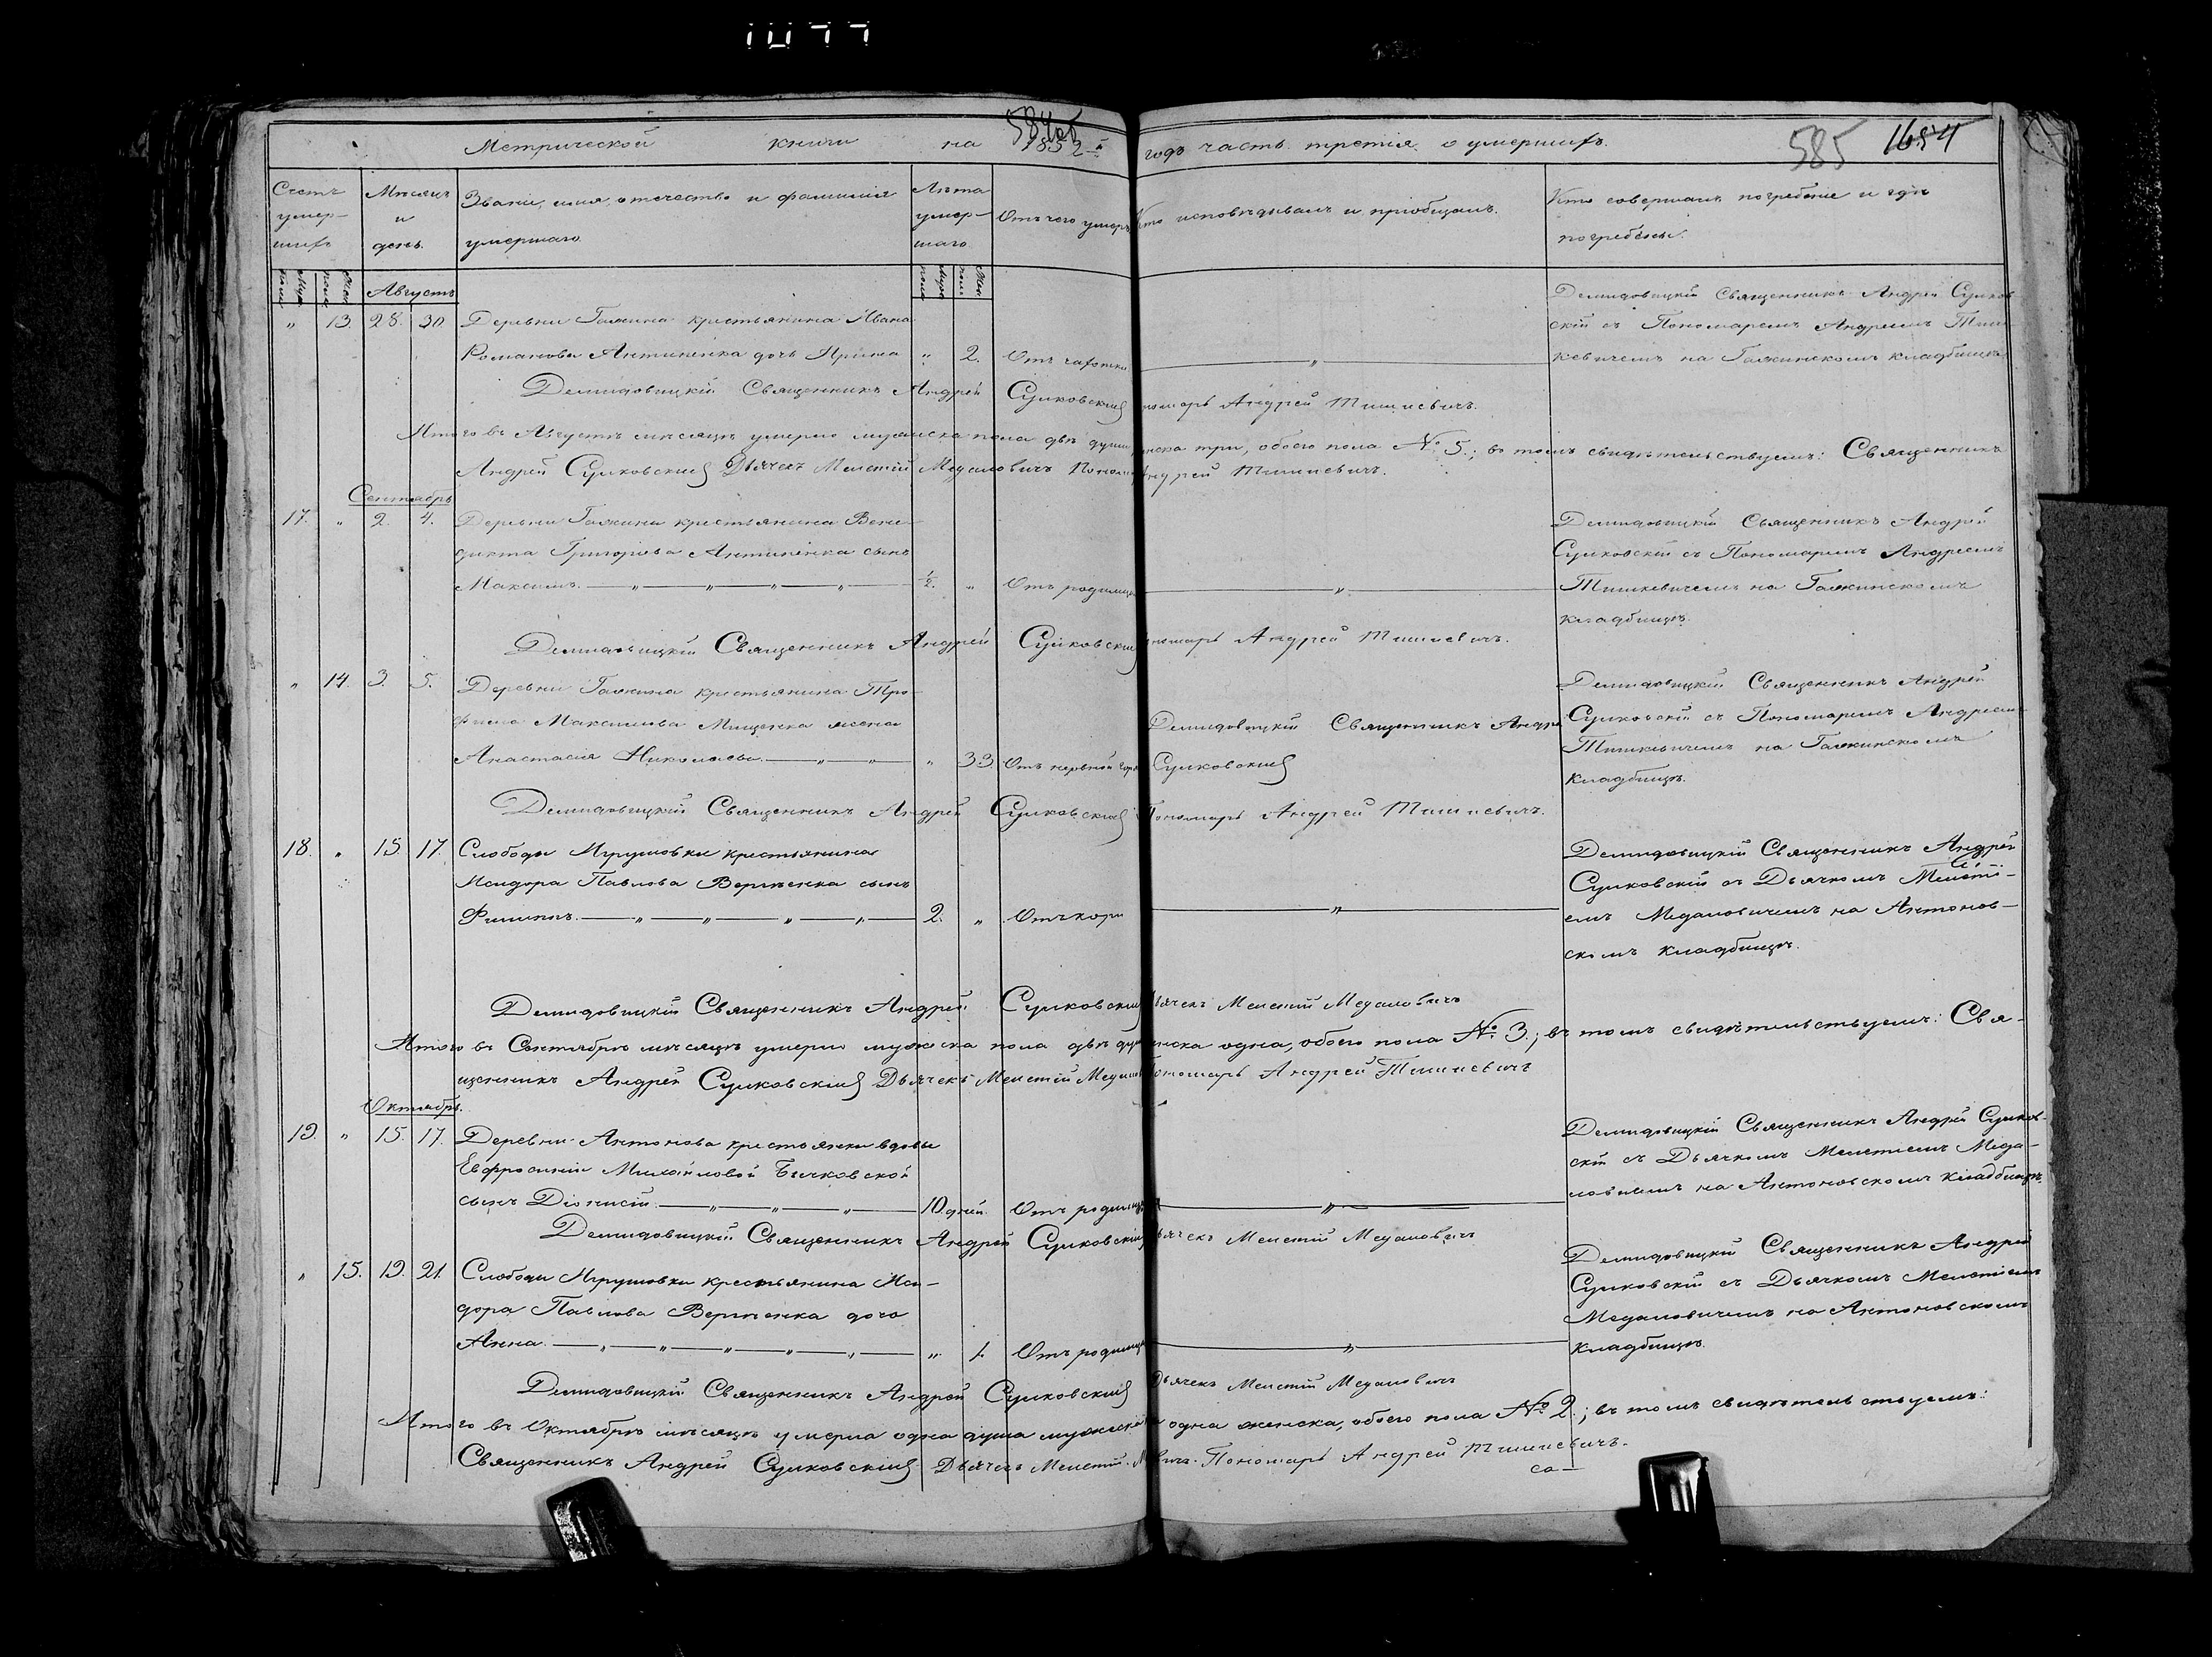 1077
584об
585 1654
Метрической книги на 1852й годъ часть третія о умершихъ.
Счетъ умершихъ
Мѣсяцъ и день.
Званіе, имя, отечество и фамилія умершаго.
Лѣта умершаго
Отъ чего умеръ
Кто исповѣдывалъ и пріобщалъ.
Кто совершалъ погребеніе и гдѣ погребены.
Муж. пола Жен. пола
Муж. пола Жен. пола
Августъ
„ 13. 28. 30. Деревни Галкина крестьянина Ивана
Романова Антипенка дочь Ирина „ 2. Отъ чахотки „
Демидовицкій Священникъ Андрей Сулковскій съ Пономаремъ Андреемъ Тишкевичемъ на Галкинскомъ кладбищѣ
Демидовицкій Священникъ Андрей Сулковскій Пономарь Андрей Тишкевичъ.
Итого въ Августѣ мѣсяцѣ умерло мужеска пола двѣ души женска три, обоего пола № 5.; въ томъ свидѣтельствуемъ: Священникъ
Андрей Сулковскій Дьячекъ Мелетій Медаловичъ Пономарь Андрей Тишкевичъ.
Сентябрь
17. „ 2. 4. Деревни Галкина крестьянина Вени-
дикта Григорьева Антипенка сынъ
Максимъ. „ „ „ „ ½. „ Отъ родимца „
Демидовицкій Священникъ Андрей
Сулковскій съ Пономаремъ Андреемъ
Тишкевичемъ на Галкинскомъ
кладбищѣ.
Демидовицкій Священникъ Андрей Сулковскій Пономарь Андрей Тишкевичъ.
„ 14. 3. 5. Деревни Галкина крестьянина Тро-
фима Максимова Мищенка жена
Анастасія Николаева. „ „ „ 33. Отъ нервной
Демидовицкій Священникъ Андрей
Сулковскій
Демидовицкій Священникъ Андрей
Сулковскій съ Пономаремъ Андреемъ
Тишкевичемъ на Галкинскомъ
кладбищѣ.
Демидовицкій Священникъ Андрей Сулковскій Пономарь Андрей Тишкевичъ.
18. „ 15. 17. Слободы Ивушовки крестьянина
Исидора Павлова Вергѣенка сынъ
Филиппъ. „ „ „ „ 2. „ Отъ кори „
Демидовицкій Священникъ Андрей
Сулковскій съ Дьячкомъ Мелеті-
емъ Медаловичемъ на Антонов-
скомъ кладбищѣ.
Демидовицкій Священникъ Андрей Сулковскій Дьячекъ Мелетій Медаловичъ
Итого въ Сентябрѣ мѣсяцѣ умерло мужеска пола двѣ души женска одна, обоего пола № 3.; въ томъ свидѣтельствуемъ: Свя-
щенникъ Андрей Сулковскій Дьячекъ Мелетій Медаловичъ Пономарь Андрей Тишкевичъ
Октябрь.
19. „ 15. 17. Деревни Антонова крестьянки вдовы
Евфросиніи Михайловой Бычковской
сынъ Діонисій. „ „ „ 10 дней. Отъ родимца „
Демидовицкій Священникъ Андрей Сулков-
скій съ Дьячкомъ Мелетіемъ Меда-
ловичемъ на Антоновскомъ кладбищѣ.
Демидовицкій Священникъ Андрей Сулковскій Дьячекъ Мелетій Медаловичъ
„ 15. 19. 21. Слободы Ивушовки крестьянина Иси-
дора Павлова Вергѣенка дочь
Анна. „ „ „ „ „ „ 1. Отъ родимца „
Демидовицкій Священникъ Андрей
Сулковскій съ Дьячкомъ Мелетіемъ
Медаловичемъ на Антоновскомъ
кладбищѣ.
Демидовицкій Священникъ Андрей Сулковскій Дьячекъ Мелетій Медаловичъ
Итого въ Октябрѣ мѣсяцѣ умерла одна душа мужеска одна женска, обоего пола № 2.; въ томъ свидѣтельствуемъ:
Священникъ Андрей Сулковскій Дьячекъ Мелетій Медаловичъ. Пономарь Андрей Тишкевичъ.
со-